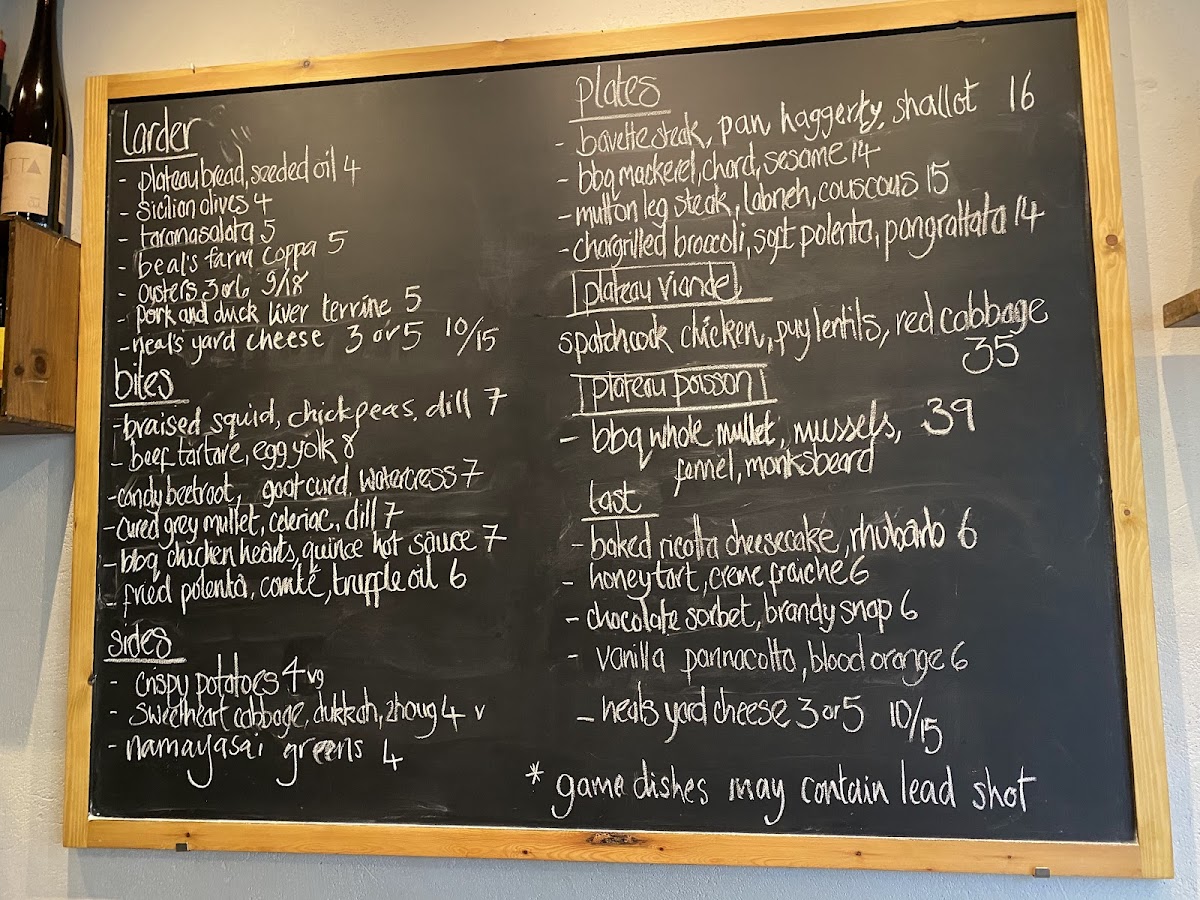 larder
- plateau bread, seeded oil 4
- Sicilian olives 4
- taramasalata 5
- beal's farm coppa 5
- oysters 3 or 6 9/18
- pork and duck liver terrine 5
- neal's yard cheese 3 or 5 10/15
bites
- braised squid, chickpeas, dill 7
- beef tartare, egg yolk 8
- candy beetroot, goat curd, watercress 7
- cured grey mullet, celeriac, dill 7
- bbq chicken hearts, quince hot sauce 7
- fried polenta, comté, truffle oil 6
sides
- crispy potatoes 4 vg
- sweetheart cabbage, dukkah, zhoug 4 v
- namayasai greens 4
plates
- bavette steak, pan haggerty, shallot 16
- bbq mackerel, chard, sesame 14
- mutton leg steak, labneh, couscous 15
- chargrilled broccoli, soft polenta, pangrattata 14
plateau viande
spatchcock chicken, puy lentils, red cabbage
35
plateau poisson
- bbq whole mullet, mussels, 39
fennel, monksbeard
last
- baked ricotta cheesecake, rhubarb 6
- honey tart, creme fraiche 6
- chocolate sorbet, brandy snap 6
- vanilla pannacotta, blood orange 6
- neals yard cheese 3 or 5 10/15
* game dishes may contain lead shot